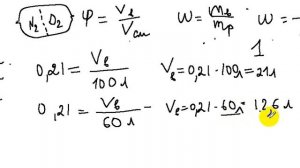 N₂ O₂ φ = Vв/Vсм W = mв/mр W = -
1
0,21 = Vв/100 л Vв = 0,21 · 100 л = 21 л
0,21 = Vв/60 л - Vв = 0,21 · 60 л = 12,6 л